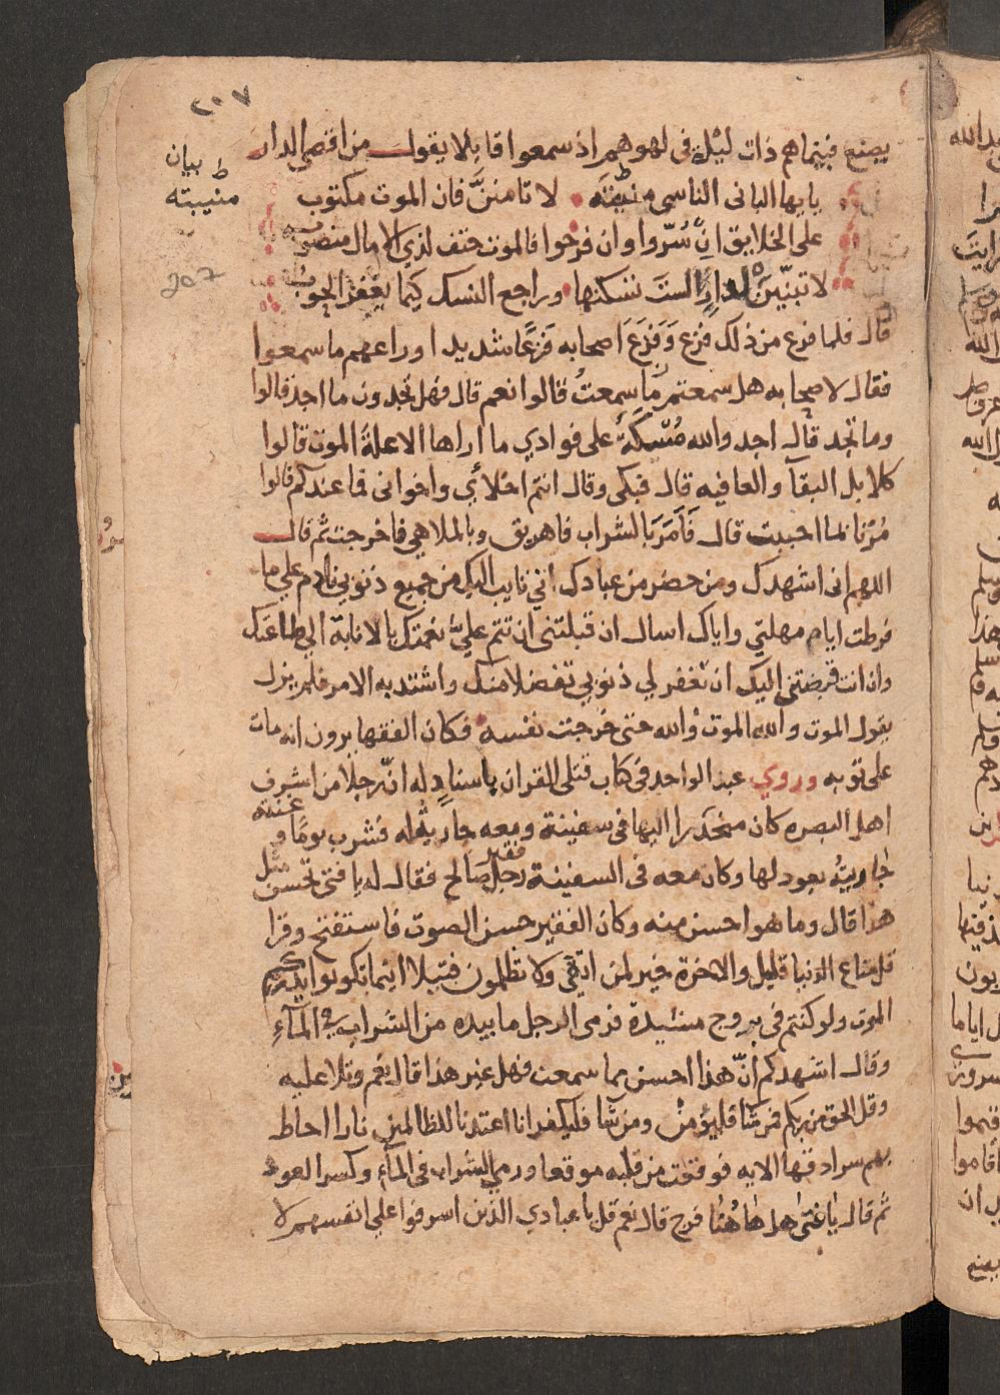 ٢٠٧
يصنع فبينما هم ذات ليلة في لهوهم اذ سمعوا قايلا يقول من اقصي الدار
ط بيان
منيته
يايها الباني الناسي منيته لا تامنن فان الموت مكتوب
على الخلايق ان سُرّوا وان فرحوا فالموت حتف لذي الامال منصوب
207
لا تبنينّ دارا لست تسكنها وراجع النسك كيما يغفر الحوب
قال فلما فرع من ذلك فزع وَفَزِعَ اصحابه فزعًا شديدا وراعهم ما سمعوا
فقال لاصحابه هل سمعتم ما سمعتُ قالوا نعم قال فهل تجدون ما اجد قالوا
وما تجد قال اجد والله مُسْكةً على فوادي ما اراها الا علة الموت قالوا
كلا بل البقآ والعافيه قال فبكى وقال انتم اخلائي واخواني فما عندكم قالوا
مُرْنا لما احببت قال فَأَمَرَ بالشراب فاهريق وبالملاهي فاخرجت ثم قال
اللهم اني اشهدك ومن حضر من عبادك اني تايب اليك من جميع ذنوبي نادم على ما
فرطت ايام مهلتي واياك اسال ان قبلتني ان تتم عليّ نعمتك بالانابة الي طاعتك
وان انت قبضتني اليك ان تغفر لي ذنوبي تفضلا منك واشتد به الامر فلم يزل
يقول الموت والله الموت والله حتى خرجت نفسه فكان الفقها يرون انه مات
على توبه وروي عبد الواحد في كتاب قتلى القران باسنادٍ له انّ رجلا من اشرف
اهل البصره كان منحدرا اليها في سفينة ومعه جارية له فشرب يومًا وغنته
جاريتُه بعود لها وكان معه في السفينة رجل فقير صالح فقال له يا فتى تحسن مثل
هذا قال وما هو احسن منه وكان الفقير حسن الصوت فاستفتح وقرا
قل متاع الدنيا قليل والاخرة خير لمن اتقى ولا تظلمون فتيلا اينما تكونوا يدرككم
الموت ولو كنتم في بروج مشيدة فرمى الرجل ما بيده من الشراب في المآءِ
وقال اشهدكم أنّ هذا احسن مما سمعت فهل غير هذا قال نعم وتلا عليه
وقل الحق من ربكم فمن شا فليؤمن ومن شا فليكفر انا اعتدنا للظالمين نارا احاط
بهم سرادقها الايه فوقعت من قلبه موقعا ورمي الشراب في المآءِ وكسر العود
ثم قال يا فتى هل هاهنا فرج قال نعم قل يا عبادي الذين اسرفوا علي انفسهم لا